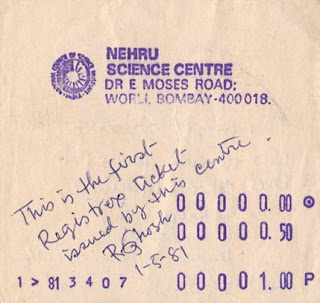 NEHRU
SCIENCE CENTRE
DR E MOSES ROAD:
WORLI, BOMBAY-400018.
This is the first
Registree ticket
issued by this centre.
RGhosh
1-5-81
00000.00
00000.50
1 > 813407 00001.00 P